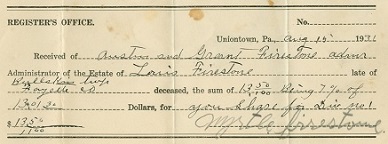 REGISTER'S OFFICE. No.
Uniontown, Pa., Aug 15 1931
Received of Austin and Grant Firestone admr
Administrator of the Estate of Louis Firestone late of
Bullskin twp
Fayette co deceased, the sum of 13 50/100 being 7% of
Dollars, for your share for Div no 1
$ 13 50/100 Firestone